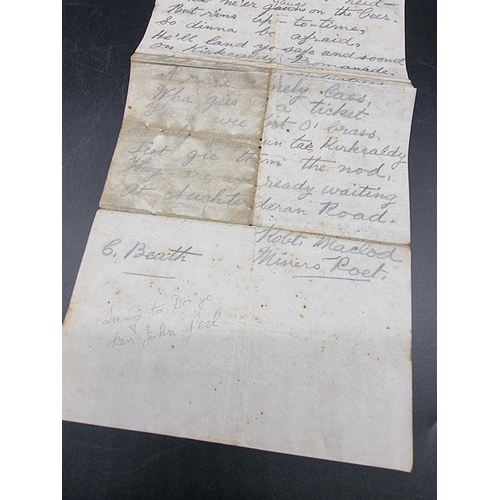 he ne'er gauns on the beer.
But rins up-to-time,
So dinna be afraid,
He'll land ye safe and sound
on Kirkcaldy Promanade.
A rare, Cass,
Wha gies a ticket
a wee bit O' brass.
tae Kirkcaldy
Just gie them the nod,
ready waiting
At Road.
Robt. Macleod
C. Beath
Miners Poet.
Sung to Do ye
Ken John Peel